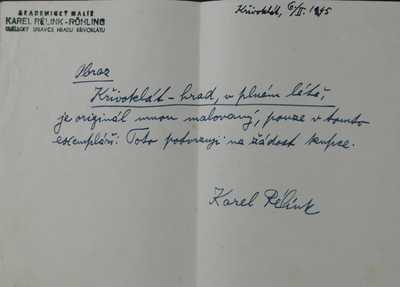 AKADEMICKÝ MALÍŘ
KAREL RÉLINK-RÖHLING
UMĚLECKÝ SPRÁVCE HRADU KŘIVOKLÁTU
Křivoklát, 6/II. 1945
Obraz
Křivoklát - hrad, v plném létě,
je originál mnou malovaný, pouze v tomto
exempláři. Toto potvrzuji na žádost kupce.
Karel Rélink